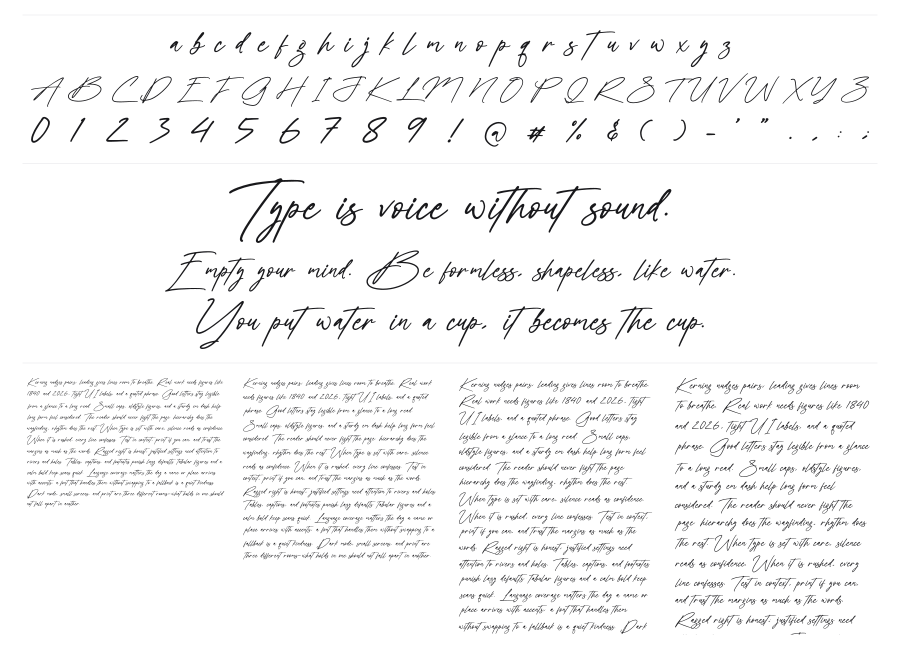 a b c d e f g h i j k l m n o p q r s t u v w x y z
A B C D E F G H I J K L M N O P Q R S T U V W X Y Z
0 1 2 3 4 5 6 7 8 9 ! @ # % & ( ) - ' " . , : ;
Type is voice without sound.
Empty your mind. Be formless, shapeless, like water.
You put water in a cup, it becomes the cup.
Kerning nudges pairs, leading gives lines room to breathe. Real work needs figures like
1840 and 2026, tight UI labels, and a quoted phrase. Good letters stay legible
from a glance to a long read. Small caps, oldstyle figures, and a sturdy en dash help
long form feel considered. The reader should never fight the page: hierarchy does the
wayfinding, rhythm does the rest. When type is set with care, silence reads as confidence.
When it is rushed, every line confesses. Test in context, print if you can, and trust the
margins as much as the words. Ragged right is honest; justified settings need attention to
rivers and holes. Tables, captions, and footnotes punish lazy defaults. Tabular figures and a
calm bold keep scans quick. Language coverage matters the day a name or place arrives
with accents; a font that handles them without swapping to a fallback is a quiet kindness.
Dark mode, small screens, and print are three different rooms—what holds in one should
not fall apart in another.
Kerning nudges pairs, leading gives lines room to breathe. Real work
needs figures like 1840 and 2026, tight UI labels, and a quoted
phrase. Good letters stay legible from a glance to a long read.
Small caps, oldstyle figures, and a sturdy en dash help long form feel
considered. The reader should never fight the page: hierarchy does the
wayfinding, rhythm does the rest. When type is set with care, silence
reads as confidence. When it is rushed, every line confesses. Test in
context, print if you can, and trust the margins as much as the words.
Ragged right is honest; justified settings need attention to rivers and holes.
Tables, captions, and footnotes punish lazy defaults. Tabular figures and a
calm bold keep scans quick. Language coverage matters the day a name or
place arrives with accents; a font that handles them without swapping to a
fallback is a quiet kindness. Dark mode, small screens, and print are
three different rooms—what holds in one should not fall apart in another.
Kerning nudges pairs, leading gives lines room to breathe.
Real work needs figures like 1840 and 2026, tight
UI labels, and a quoted phrase. Good letters stay
legible from a glance to a long read. Small caps,
oldstyle figures, and a sturdy en dash help long form feel
considered. The reader should never fight the page:
hierarchy does the wayfinding, rhythm does the rest.
When type is set with care, silence reads as confidence.
When it is rushed, every line confesses. Test in context,
print if you can, and trust the margins as much as the
words. Ragged right is honest; justified settings need
attention to rivers and holes. Tables, captions, and footnotes
punish lazy defaults. Tabular figures and a calm bold keep
scans quick. Language coverage matters the day a name or
place arrives with accents; a font that handles them
without swapping to a fallback is a quiet kindness. Dark
Kerning nudges pairs, leading gives lines room
to breathe. Real work needs figures like 1840
and 2026, tight UI labels, and a quoted
phrase. Good letters stay legible from a glance
to a long read. Small caps, oldstyle figures,
and a sturdy en dash help long form feel
considered. The reader should never fight the
page: hierarchy does the wayfinding, rhythm does
the rest. When type is set with care, silence
reads as confidence. When it is rushed, every
line confesses. Test in context, print if you can,
and trust the margins as much as the words.
Ragged right is honest; justified settings need